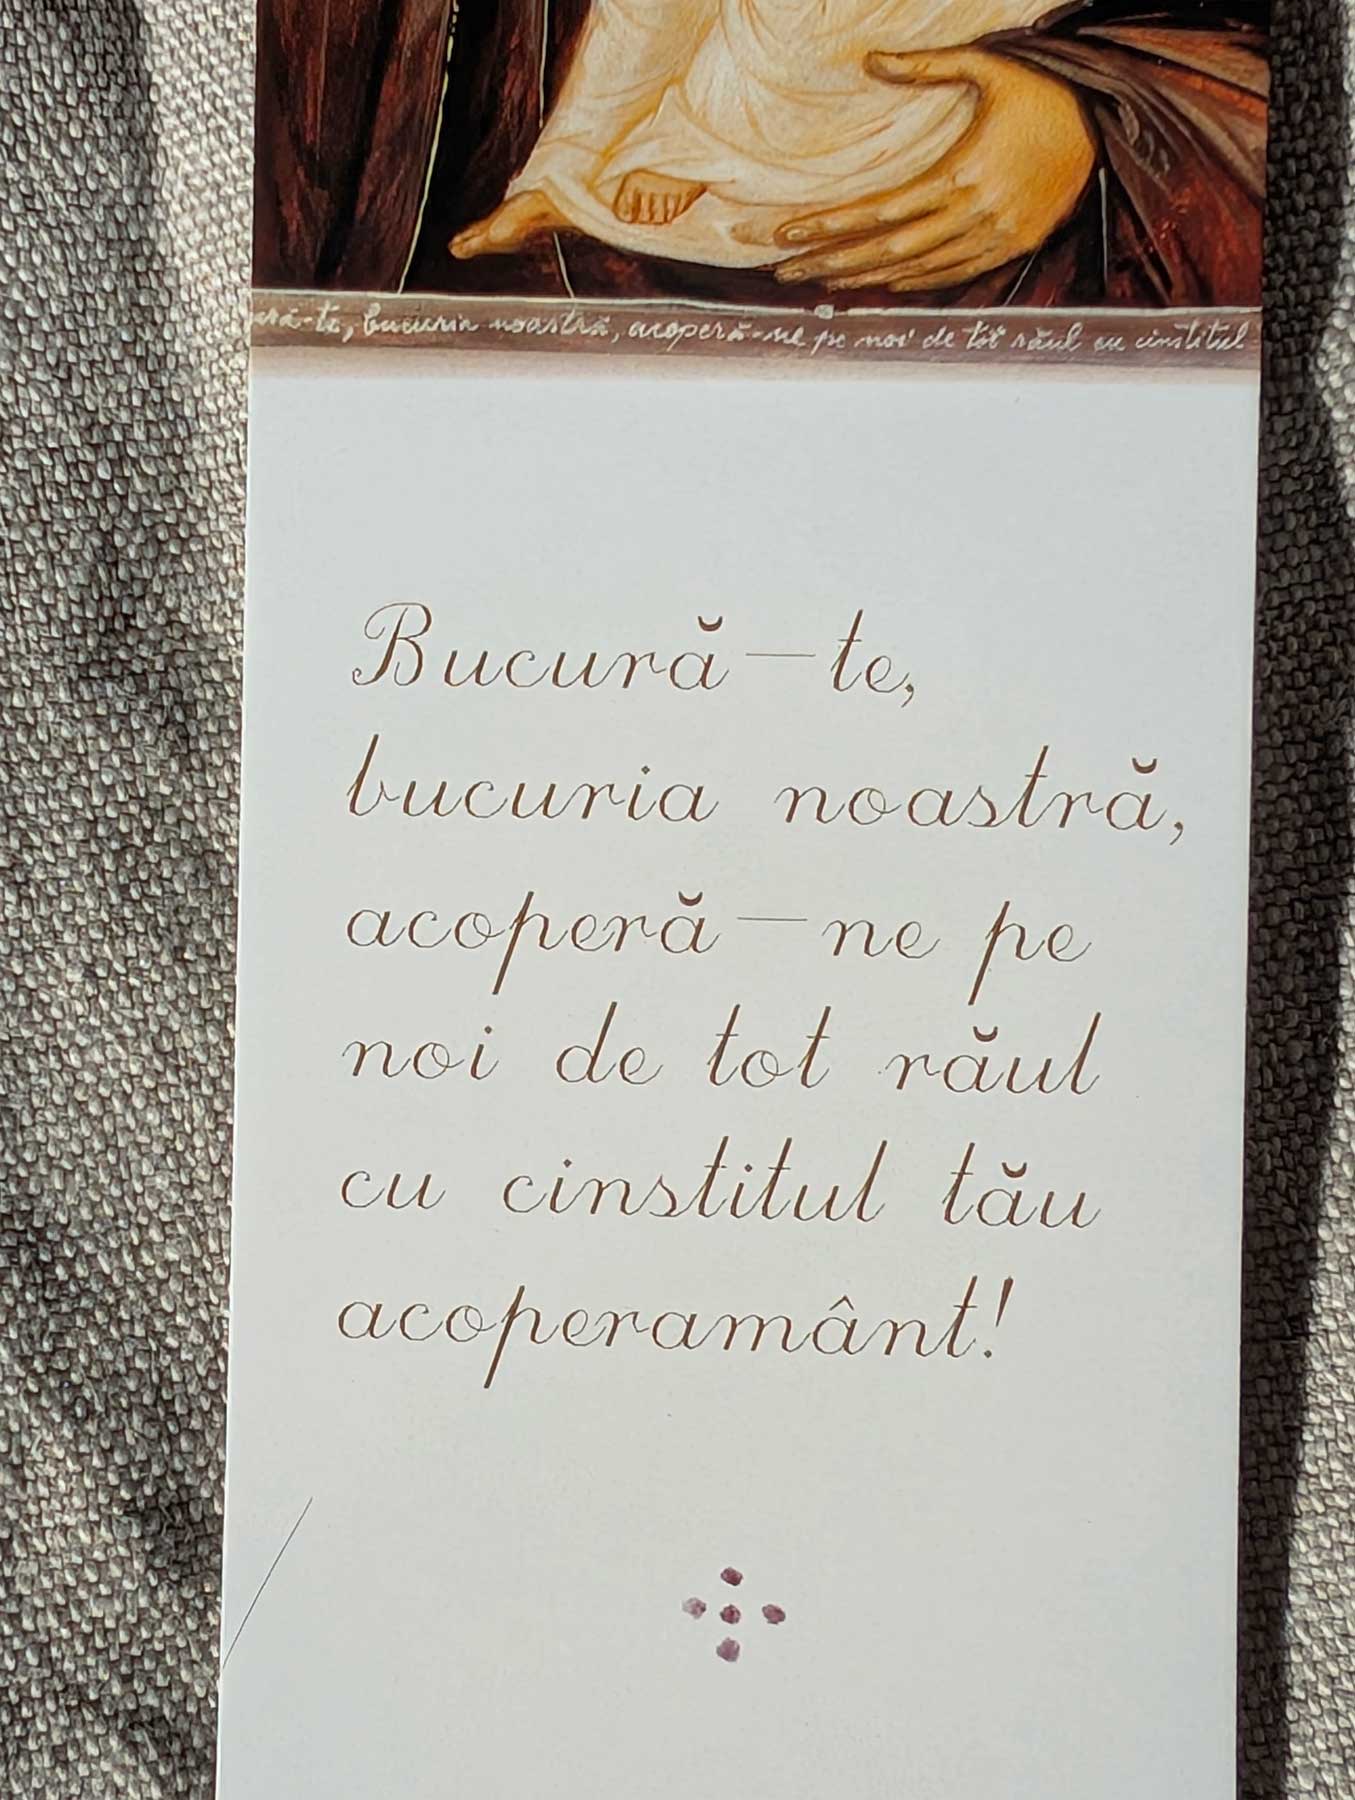 ură-te, bucuria noastră, acoperă-ne pe noi de tot răul cu cinstitul
Bucură-te,
bucuria noastră,
acoperă-ne pe
noi de tot răul
cu cinstitul tău
acoperamânt!